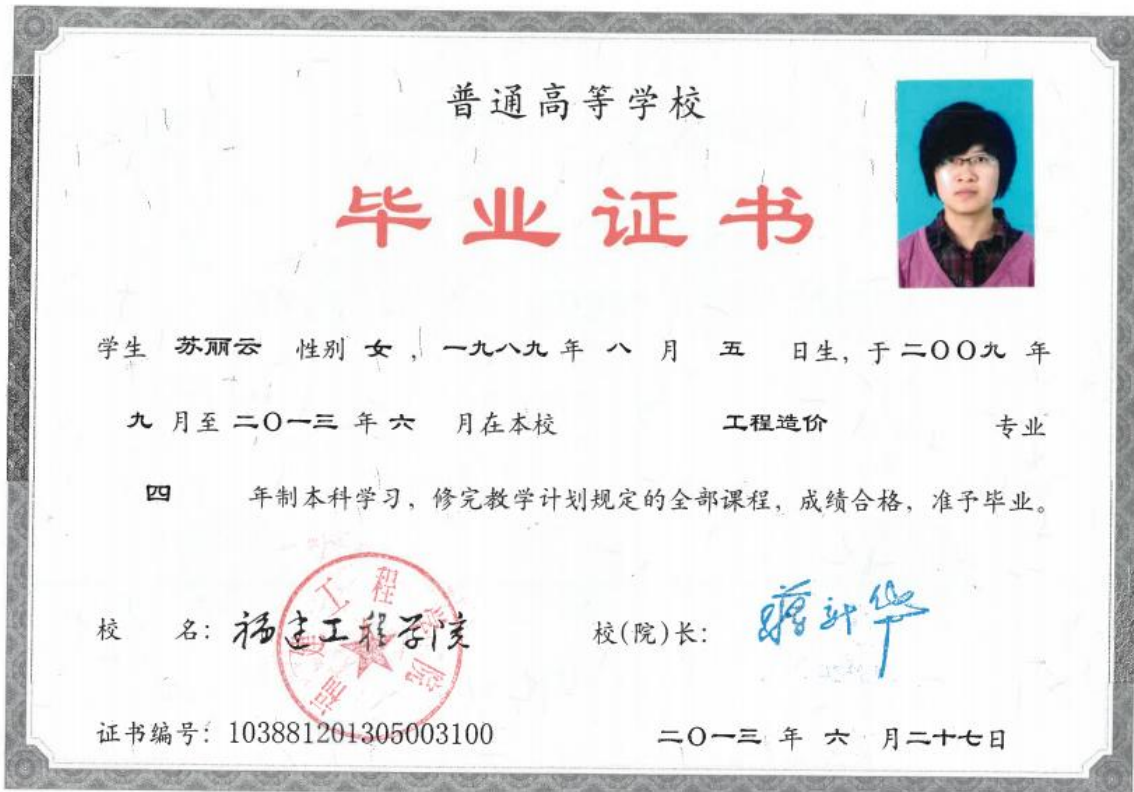 普通高等学校
毕业证书
学生 苏丽云 性别 女 , 一九八九 年 八 月 五 日生, 于 二〇〇九 年
九 月至 二〇一三 年 六 月在本校 工程造价 专业
四 年制本科学习, 修完教学计划规定的全部课程, 成绩合格, 准予毕业。
校 名: 福建工程学院 校(院)长: 蒋新华
福建工程学院
证书编号: 103881201305003100 二〇一三 年 六 月二十七日